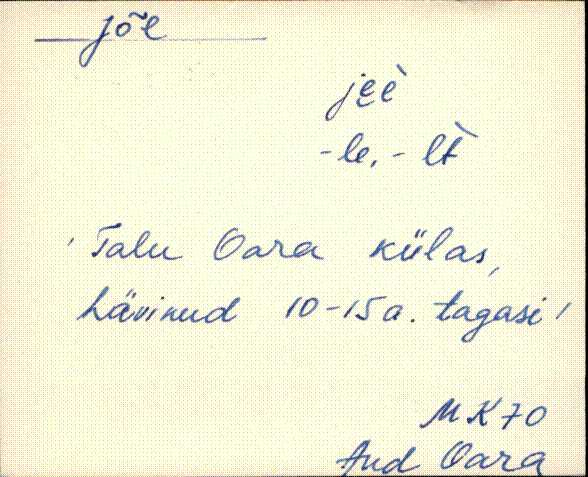 jõe
je̮è
-le, - lt̀
'Talu Oara külas,
hävinud 10-15 a. tagasi'
MK 70
Aud Oara